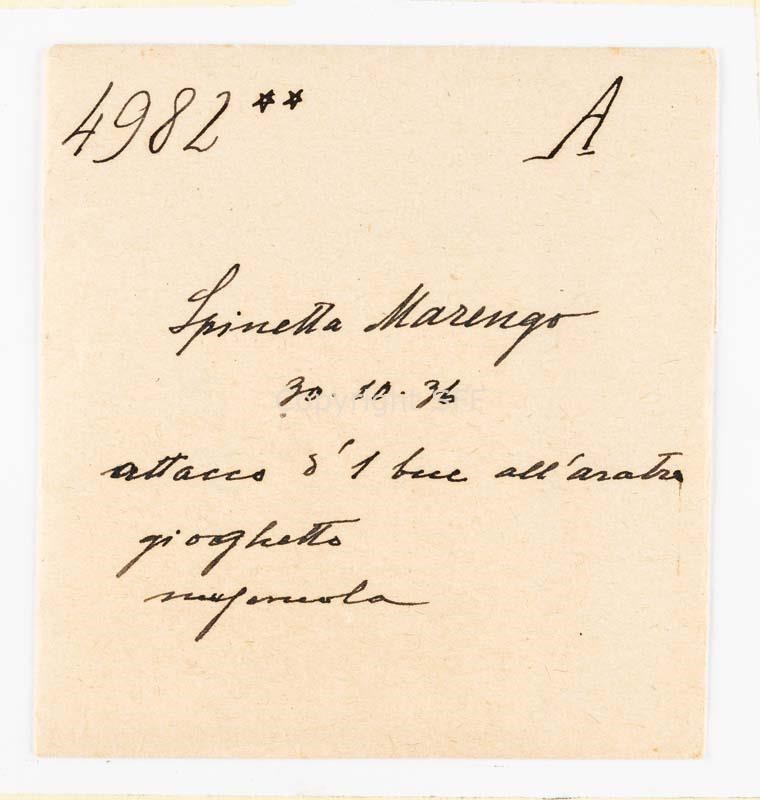 4982** A
Spinetta Marengo
30·10·36
attacco d'1 bue all'aratro
gioghetto
museruola